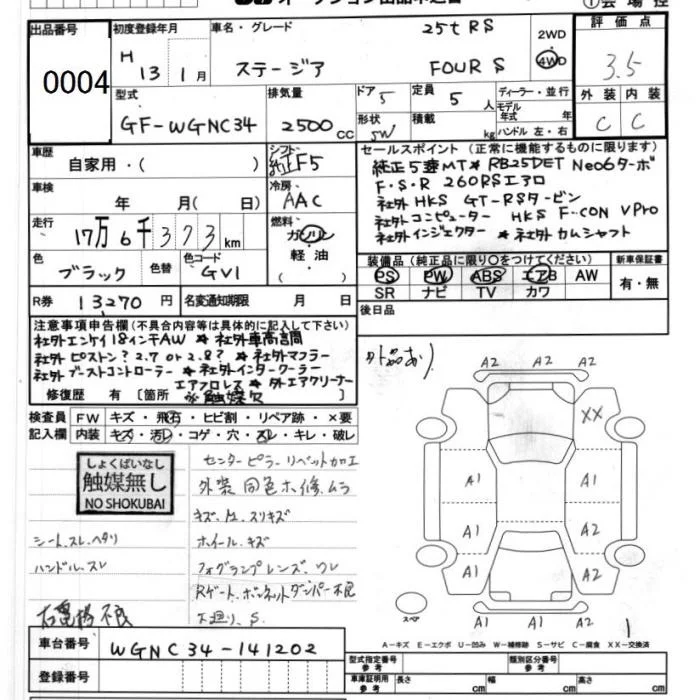 出品番号
0004
初度登録年月
H 13 年 1 月
車名・グレード
25t RS
ステージア FOUR S
2WD
4WD
評価点
3.5
型式
GF-WGNC34
排気量
2500 cc
ドア 5
形状 SW
定員 5 人
積載 kg
ディーラー・並行
モデル年式 年
ハンドル 左・右
外装 内装
C C
車歴
自家用・( )
シフト
純正F5
車検
年 月( 日)
冷房
AAC
走行
17万6千373km
燃料
ガソリン
軽油
( )
色
ブラック
色替
色コード
GV1
R券 13270 円
名変通知期限 月 日
セールスポイント (正常に機能するものに限ります)
純正5速MT★RB25DET Neo6ターボ
F・S・R 260RSエアロ
社外HKS GT-RSタービン
社外コンピューター HKS F-CON VPro
社外インジェクター★社外カムシャフト
装備品(純正品に限り〇をつけてください)
新車保証書
PS PW ABS エアB AW
SR ナビ TV カワ
有・無
後日品
注意事項申告欄(不具合内容等は具体的に記入して下さい)
社外エンケイ18インチAW ★ 社外車高調
社外ピストン?2.7 or 2.8? ★社外マフラー
社外ブーストコントローラー ★社外インタークーラー
エアフロレス★社外エアクリーナー
修復歴 有 [箇所 ※触媒欠
外品あり
検査員記入欄
FW キズ・飛石・ヒビ割・リペア跡・×要
内装 キズ・汚レ・コゲ・穴・スレ・キレ・破レ
しょくばいなし
触媒無し
NO SHOKUBAI
センターピラーリベット加工
外装 同色ホ修.ムラ
キズ.A.スリキズ
シート.スレ.ヘタリ
ホイール.キズ
ハンドル.スレ
フォグランプレンズ.ワレ
Rゲート.ボンネットダンパー不良
下廻り.S.
A2
A2 A2
XX
A1 A1
A1 A2
A1 A2
A1 A2
A1
スペア
1
A-キズ E-エクボ U-凹み W-補修跡 S-サビ C-腐食 XX-交換済
車台番号
WGNC34-141202
登録番号
型式指定番号 参考
類別区分番号 参考
車庫証明用 参考 長さ cm 幅 cm 高さ cm